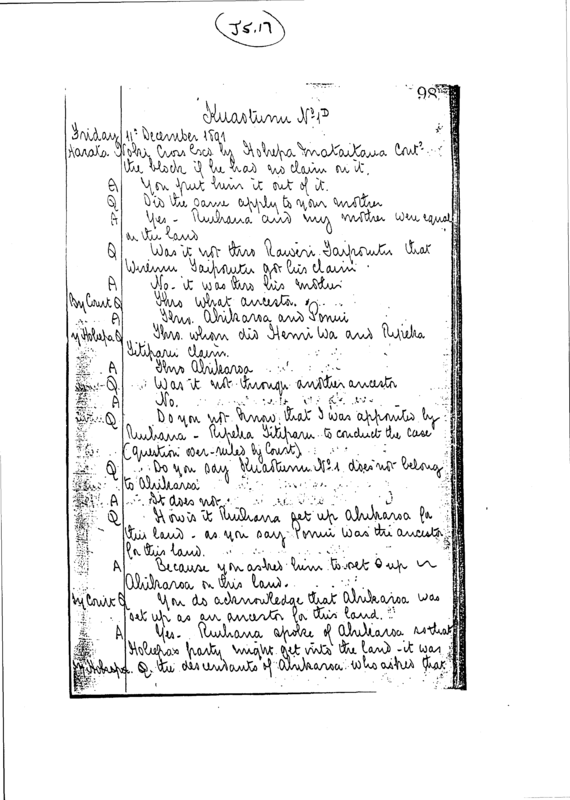 J5.17
98
Kuaotunu No 1D
Friday 11th December 1891
Harata Noki, Cross Exd by Hohepa Mataitaua Contd
the block if he had no claim on it.
A You put him it out of it.
Q Did the same apply to your mother
A Yes - Ruihana and my mother were equal
on the land
Q Was it not thro Raweri Taipouutu that
Wiremu Taipouutu got his claim
A No - it was thro his mother
By Court Q Thro what ancestor.
A Thro. Ahikaroa and Ponui
By Hohepa Q Thro. whom did Henri Wa and Ripeka
Titipari claim.
A Thro Ahikaroa
Q Was it not through another ancestor
A No.
Q Do you not know that I was appointed by
Ruihana - Ripeka Titipari to conduct the case
(question over-ruled by Court)
Q Do you say Kuaotunu No 1 does not belong
to Ahikaroa
A It does not.
Q How is it Ruihana set up Ahikaroa for
this land - as you say Ponui was the ancestor
for this land.
A Because you asked him to set up
Ahikaroa on this land.
By Court Q You do acknowledge that Ahikaroa was
set up as an ancestor for this land.
A Yes - Ruihana spoke of Ahikaroa so that
Hohepa's party might get into the land - it was
By Hohepa. Q. the descendants of Ahikaroa who asked that